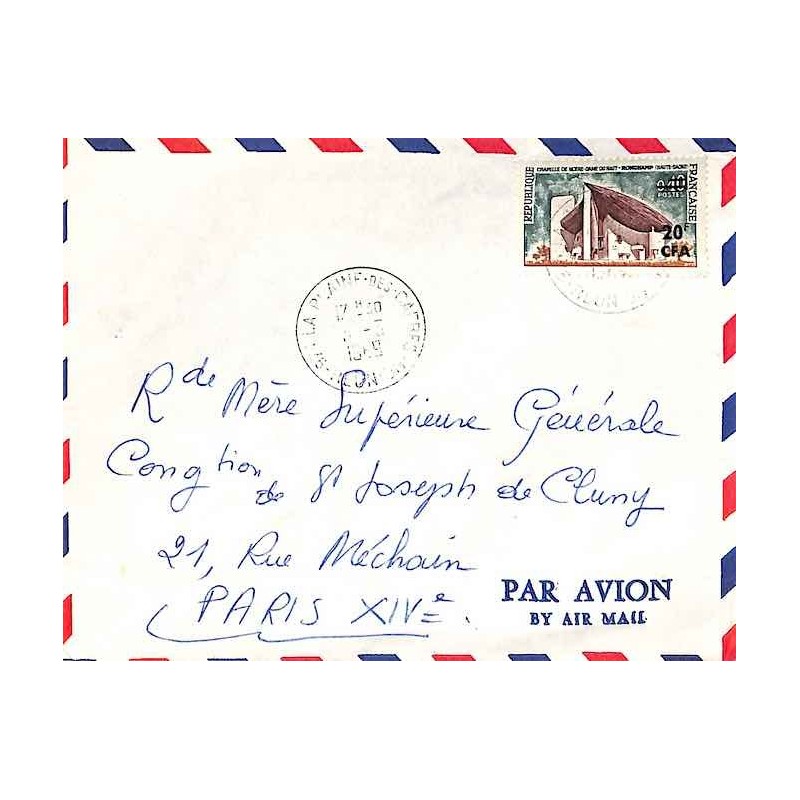 RÉPUBLIQUE
CHAPELLE DE NOTRE-DAME DU HAUT - RONCHAMP (HAUTE-SAÔNE)
FRANÇAISE
0,40
POSTES
20F
CFA
LA PLAINE-DES-CAFRES
Rde Mère Supérieure Générale
Congtion de St Joseph de Cluny
21, Rue Méchain
PARIS XIVe.
PAR AVION
BY AIR MAIL